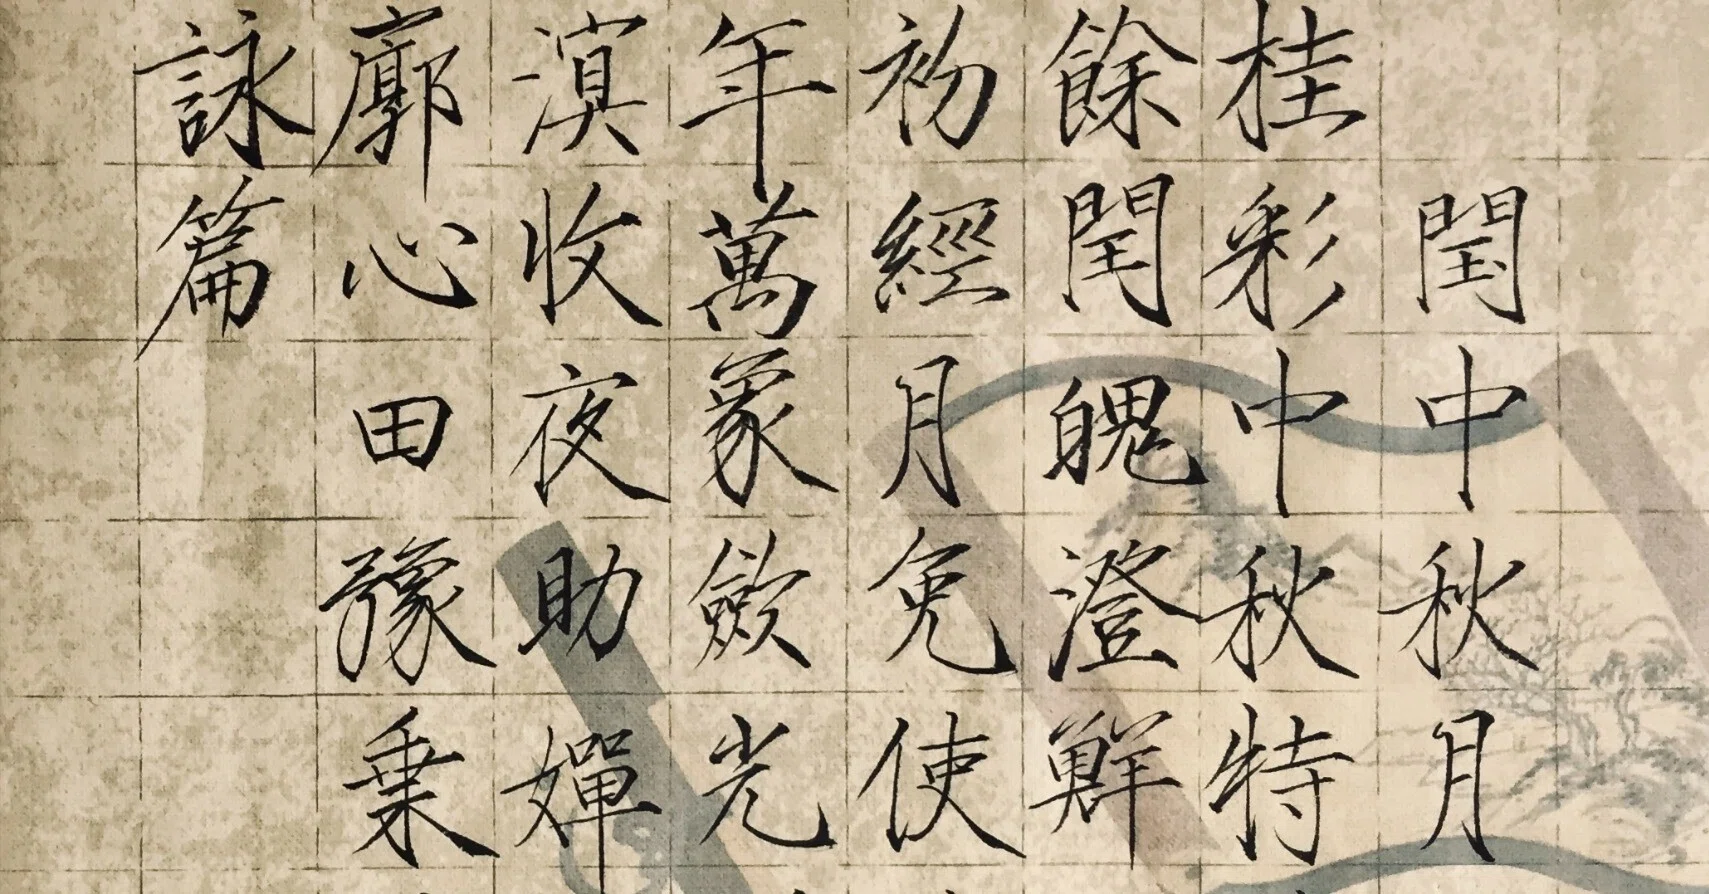 閏中秋月
桂彩中秋特
餘閏魄澄鮮
初經月免使
年萬象斂光
溟收夜助嬋
廓心田豫乗
詠篇